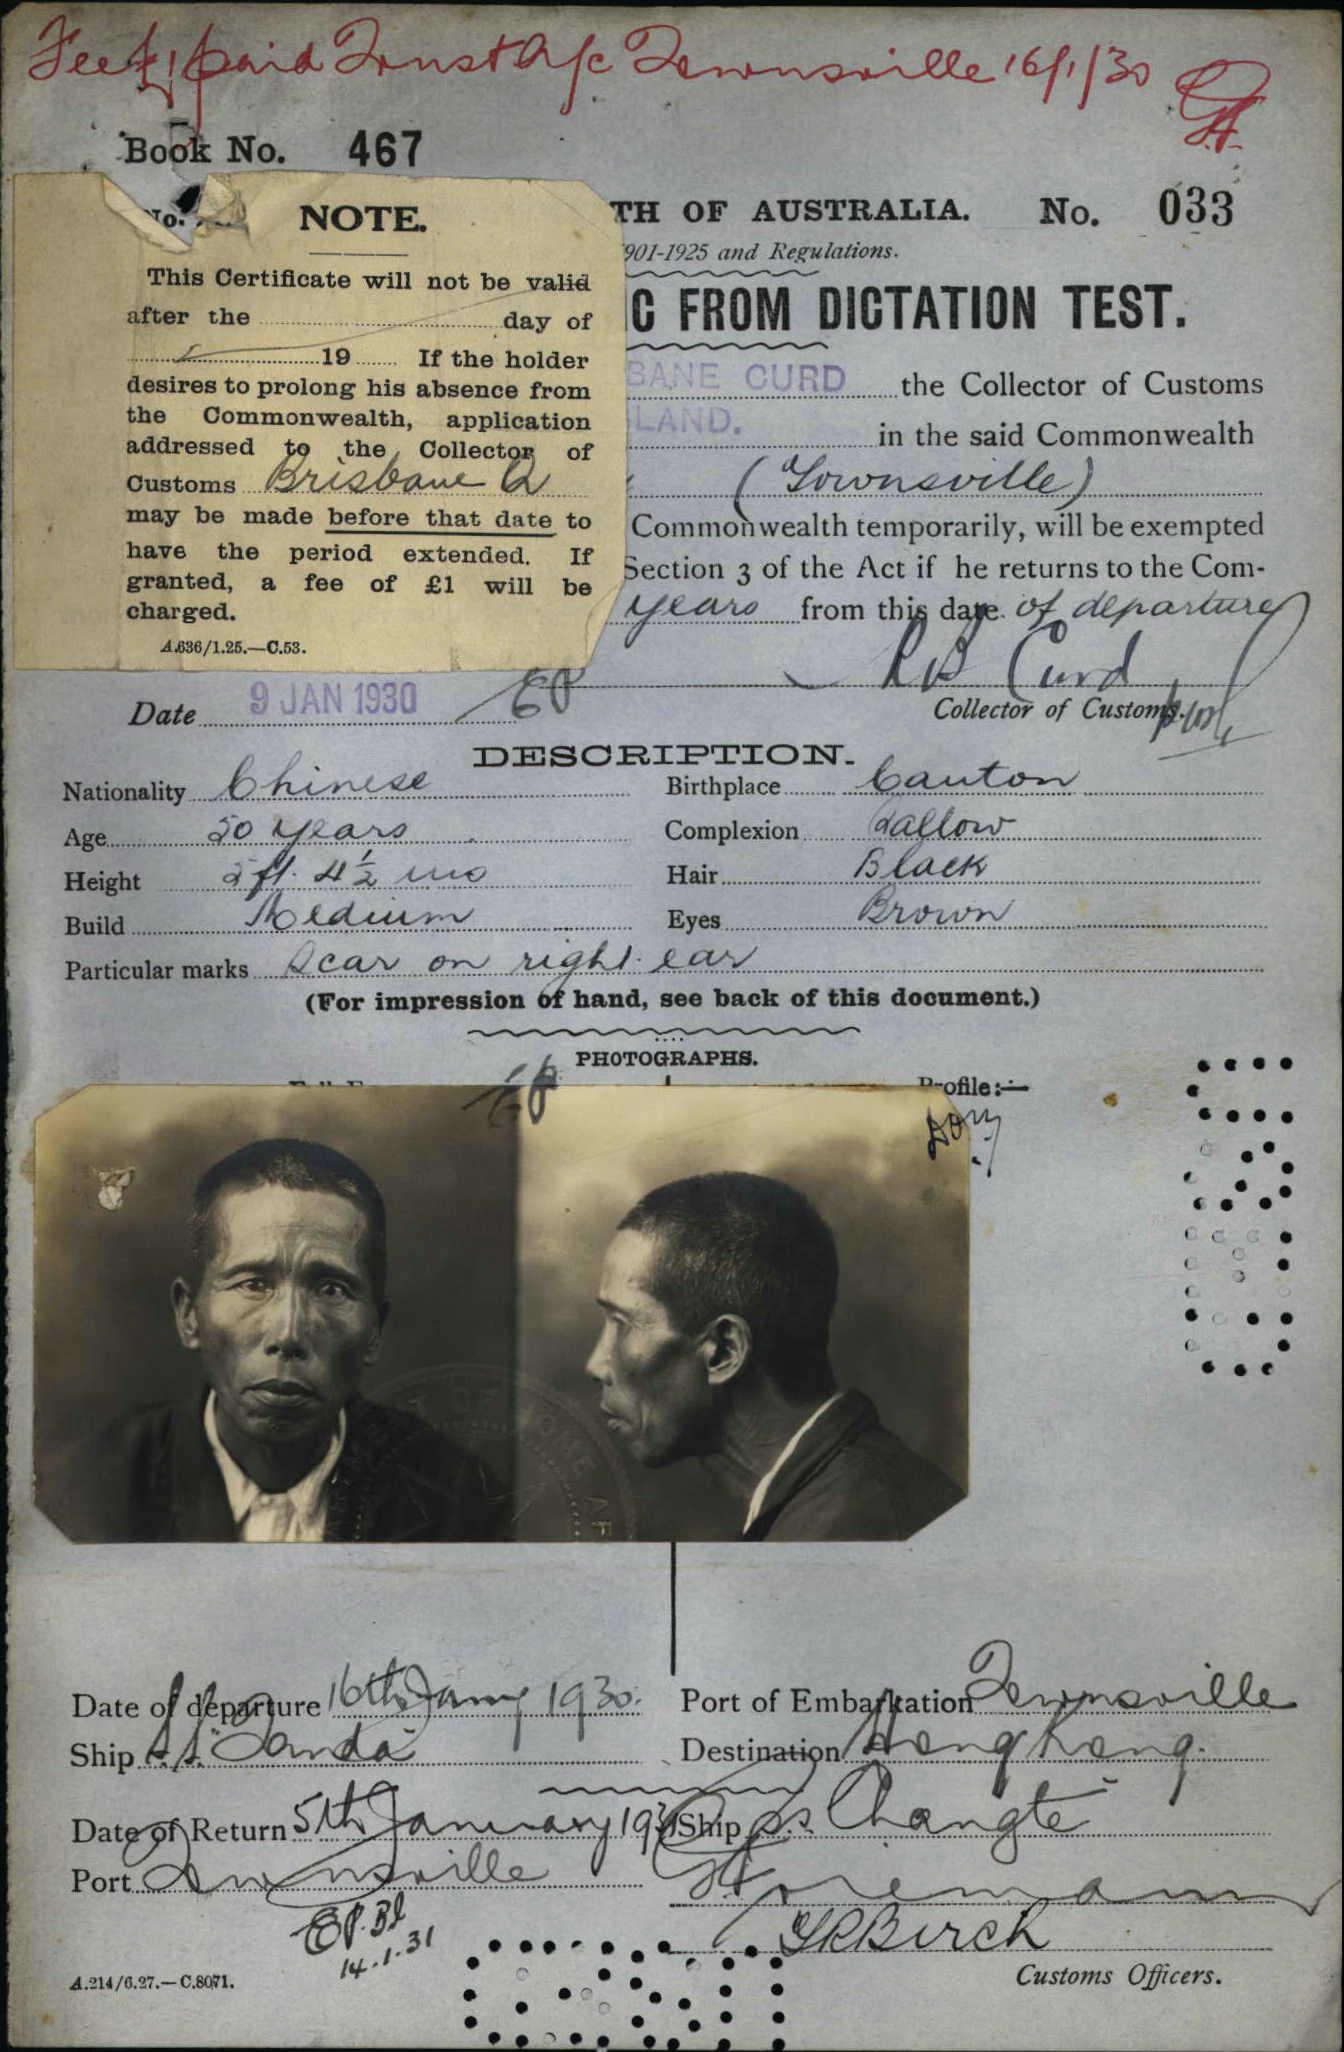 Fee £1 paid Trust A/c Townsville 16/1/30
Book No. 467
No.
NOTE.
This Certificate will not be valid
after the day of
19 If the holder
desires to prolong his absence from
the Commonwealth, application
addressed to the Collector of
Customs Brisbane Q
may be made before that date to
have the period extended. If
granted, a fee of £1 will be
charged.
A.636/1.25.—C.53.
TH OF AUSTRALIA. No. 033
901-1925 and Regulations.
FROM DICTATION TEST.
BANE CURD the Collector of Customs
LAND. in the said Commonwealth
(Townsville)
Commonwealth temporarily, will be exempted
Section 3 of the Act if he returns to the Com-
years from this date of departure
R B Curd
Date 9 JAN 1930 EP
Collector of Customs.
DESCRIPTION.
Nationality Chinese Birthplace Canton
Age 50 years Complexion Sallow
Height 5 ft. 4½ ins Hair Black
Build Medium Eyes Brown
Particular marks Scar on right ear
(For impression of hand, see back of this document.)
PHOTOGRAPHS.
Profile:—
EP
Date of departure 16th Jany 1930. Port of Embarkation Townsville
Ship S.S. "Tanda" Destination Hong Kong.
Date of Return 5th January 1931 Ship s.s. Changte
Port Townsville
EP. Bl
14.1.31
Birch
A.214/6.27.—C.8071.
Customs Officers.